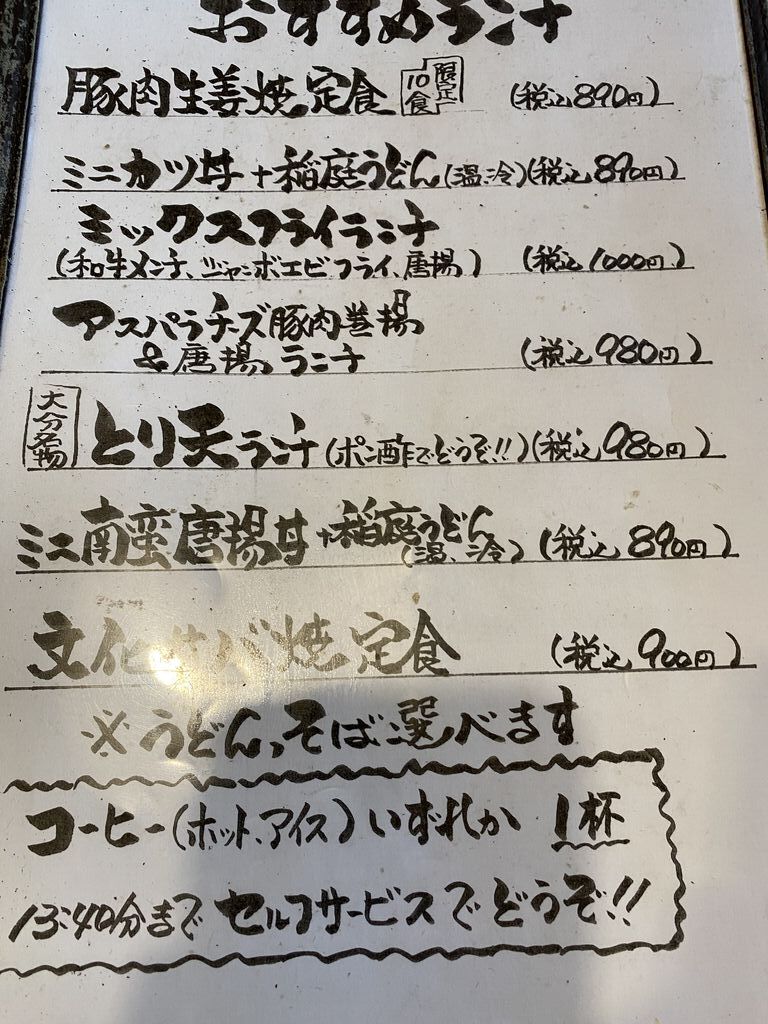 おすすめランチ
豚肉生姜焼定食 限定10食 (税込890円)
ミニカツ丼+稲庭うどん(温、冷)(税込890円)
ミックスフライランチ
(和牛メンチ、ジャンボエビフライ、唐揚) (税込1000円)
アスパラチーズ豚肉巻揚
&唐揚ランチ (税込980円)
大分名物 とり天ランチ(ポン酢でどうぞ!!)(税込980円)
ミニ南蛮唐揚丼+稲庭うどん(温、冷) (税込890円)
文化サバ焼定食 (税込900円)
※うどん、そば選べます
コーヒー(ホット、アイス)いずれか 1杯
13:40分まで セルフサービスで どうぞ!!